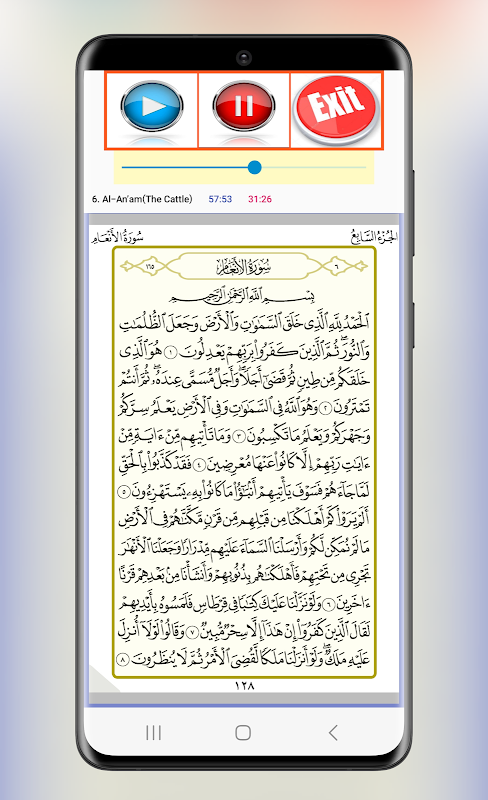 Exit
6. Al-An'am(The Cattle) 57:53 31:26
الجُزْءُ السَّابِعُ سُورَةُ الأَنْعَامِ
٦ سُورَةُ الأَنْعَامِ ١٦٥
بِسْمِ اللَّهِ الرَّحْمَٰنِ الرَّحِيمِ
ٱلْحَمْدُ لِلَّهِ ٱلَّذِى خَلَقَ ٱلسَّمَٰوَٰتِ وَٱلْأَرْضَ وَجَعَلَ ٱلظُّلُمَٰتِ
وَٱلنُّورَ ثُمَّ ٱلَّذِينَ كَفَرُوا۟ بِرَبِّهِمْ يَعْدِلُونَ ١ هُوَ ٱلَّذِى
خَلَقَكُم مِّن طِينٍ ثُمَّ قَضَىٰٓ أَجَلًا وَأَجَلٌ مُّسَمًّى عِندَهُۥ ثُمَّ أَنتُمْ
تَمْتَرُونَ ٢ وَهُوَ ٱللَّهُ فِى ٱلسَّمَٰوَٰتِ وَفِى ٱلْأَرْضِ يَعْلَمُ سِرَّكُمْ
وَجَهْرَكُمْ وَيَعْلَمُ مَا تَكْسِبُونَ ٣ وَمَا تَأْتِيهِم مِّنْ ءَايَةٍ مِّنْ
ءَايَٰتِ رَبِّهِمْ إِلَّا كَانُوا۟ عَنْهَا مُعْرِضِينَ ٤ فَقَدْ كَذَّبُوا۟ بِٱلْحَقِّ
لَمَّا جَآءَهُمْ فَسَوْفَ يَأْتِيهِمْ أَنۢبَٰٓؤُا۟ مَا كَانُوا۟ بِهِۦ يَسْتَهْزِءُونَ ٥
أَلَمْ يَرَوْا۟ كَمْ أَهْلَكْنَا مِن قَبْلِهِم مِّن قَرْنٍ مَّكَّنَّٰهُمْ فِى ٱلْأَرْضِ
مَا لَمْ نُمَكِّن لَّكُمْ وَأَرْسَلْنَا ٱلسَّمَآءَ عَلَيْهِم مِّدْرَارًا وَجَعَلْنَا ٱلْأَنْهَٰرَ
تَجْرِى مِن تَحْتِهِمْ فَأَهْلَكْنَٰهُم بِذُنُوبِهِمْ وَأَنشَأْنَا مِنۢ بَعْدِهِمْ قَرْنًا
ءَاخَرِينَ ٦ وَلَوْ نَزَّلْنَا عَلَيْكَ كِتَٰبًا فِى قِرْطَاسٍ فَلَمَسُوهُ بِأَيْدِيهِمْ
لَقَالَ ٱلَّذِينَ كَفَرُوٓا۟ إِنْ هَٰذَآ إِلَّا سِحْرٌ مُّبِينٌ ٧ وَقَالُوا۟ لَوْلَآ أُنزِلَ
عَلَيْهِ مَلَكٌ وَلَوْ أَنزَلْنَا مَلَكًا لَّقُضِىَ ٱلْأَمْرُ ثُمَّ لَا يُنظَرُونَ ٨
١٢٨